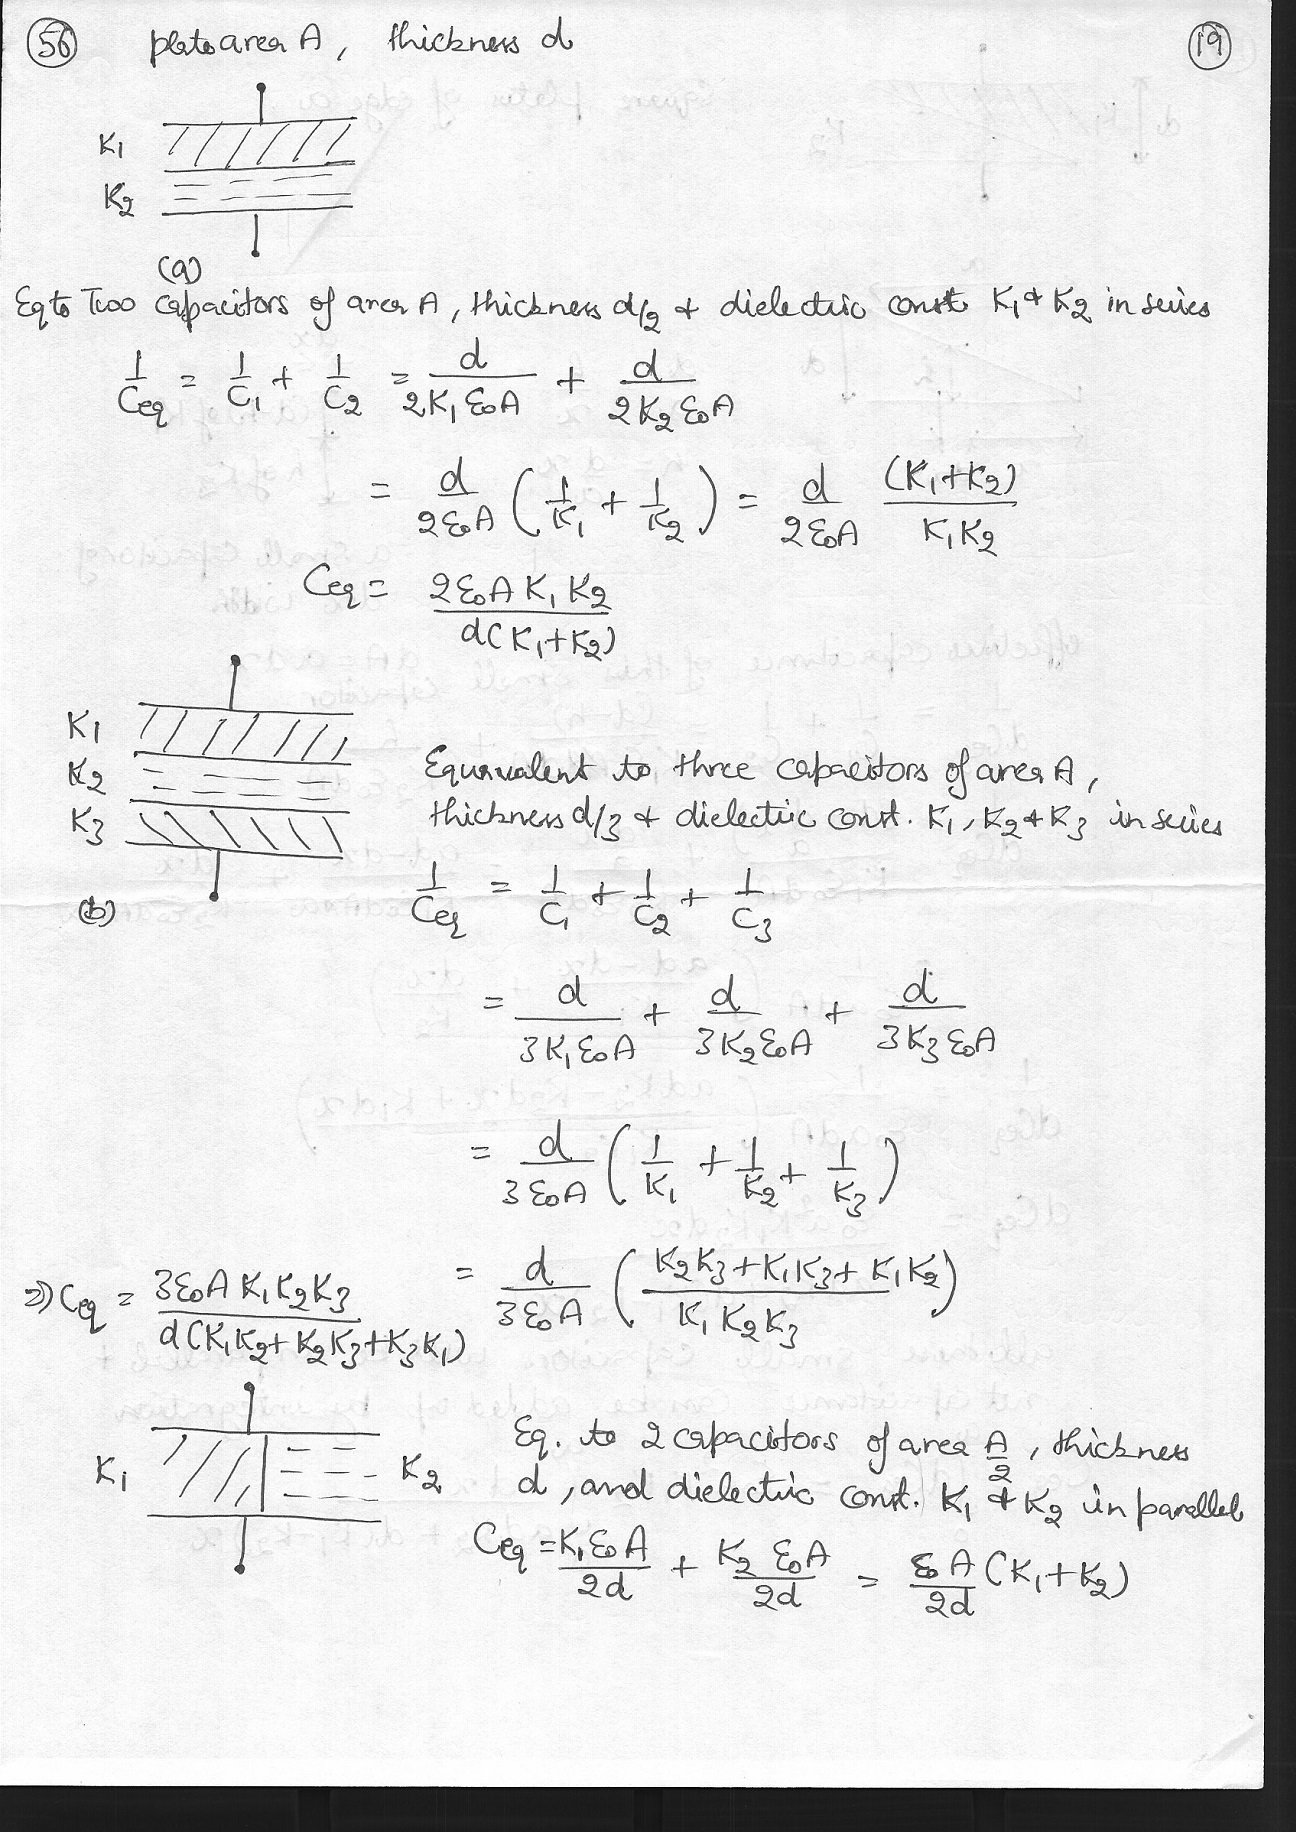 56 plate area A, thickness d 19
K1
K2
(a)
Eq to Two capacitors of area A, thickness d/2 & dielectric const K1 & K2 in series
1/Ceq = 1/C1 + 1/C2 = d/2K1ε0A + d/2K2ε0A
= d/2ε0A (1/K1 + 1/K2) = d/2ε0A (K1+K2)/K1K2
Ceq = 2ε0AK1K2/d(K1+K2)
K1
K2
K3
(b)
Equivalent to three capacitors of area A,
thickness d/3 & dielectric const. K1, K2 & K3 in series
1/Ceq = 1/C1 + 1/C2 + 1/C3
= d/3K1ε0A + d/3K2ε0A + d/3K3ε0A
= d/3ε0A (1/K1 + 1/K2 + 1/K3)
= d/3ε0A (K2K3+K1K3+K1K2/K1K2K3)
⇒ Ceq = 3ε0AK1K2K3/d(K1K2+K2K3+K3K1)
K1 K2
Eq. to 2 capacitors of area A/2, thickness
d, and dielectric const. K1 & K2 in parallel
Ceq = K1ε0A/2d + K2ε0A/2d = ε0A/2d (K1+K2)